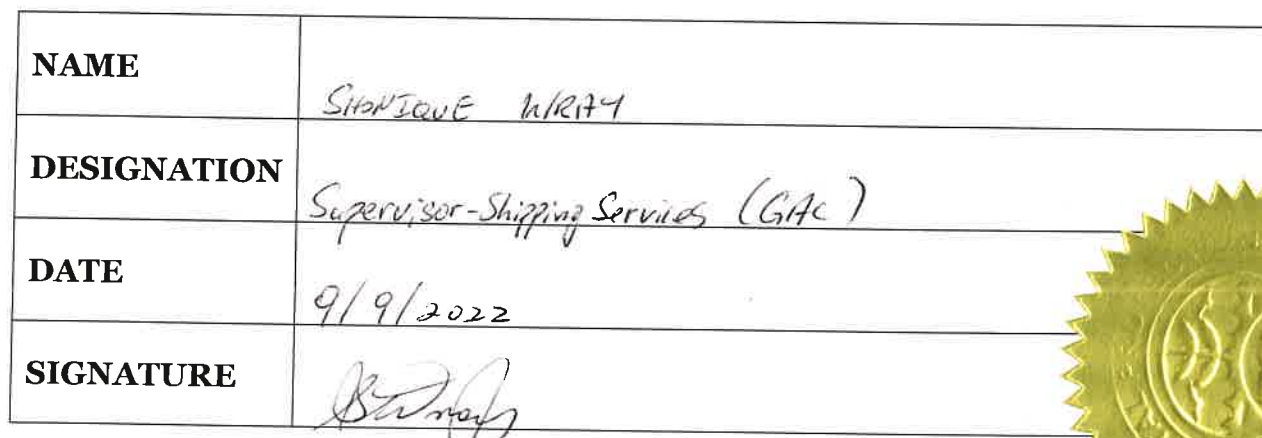 NAME SHONIQUE WRAY
DESIGNATION Supervisor-Shipping Services (GAC)
DATE 9/9/2022
SIGNATURE